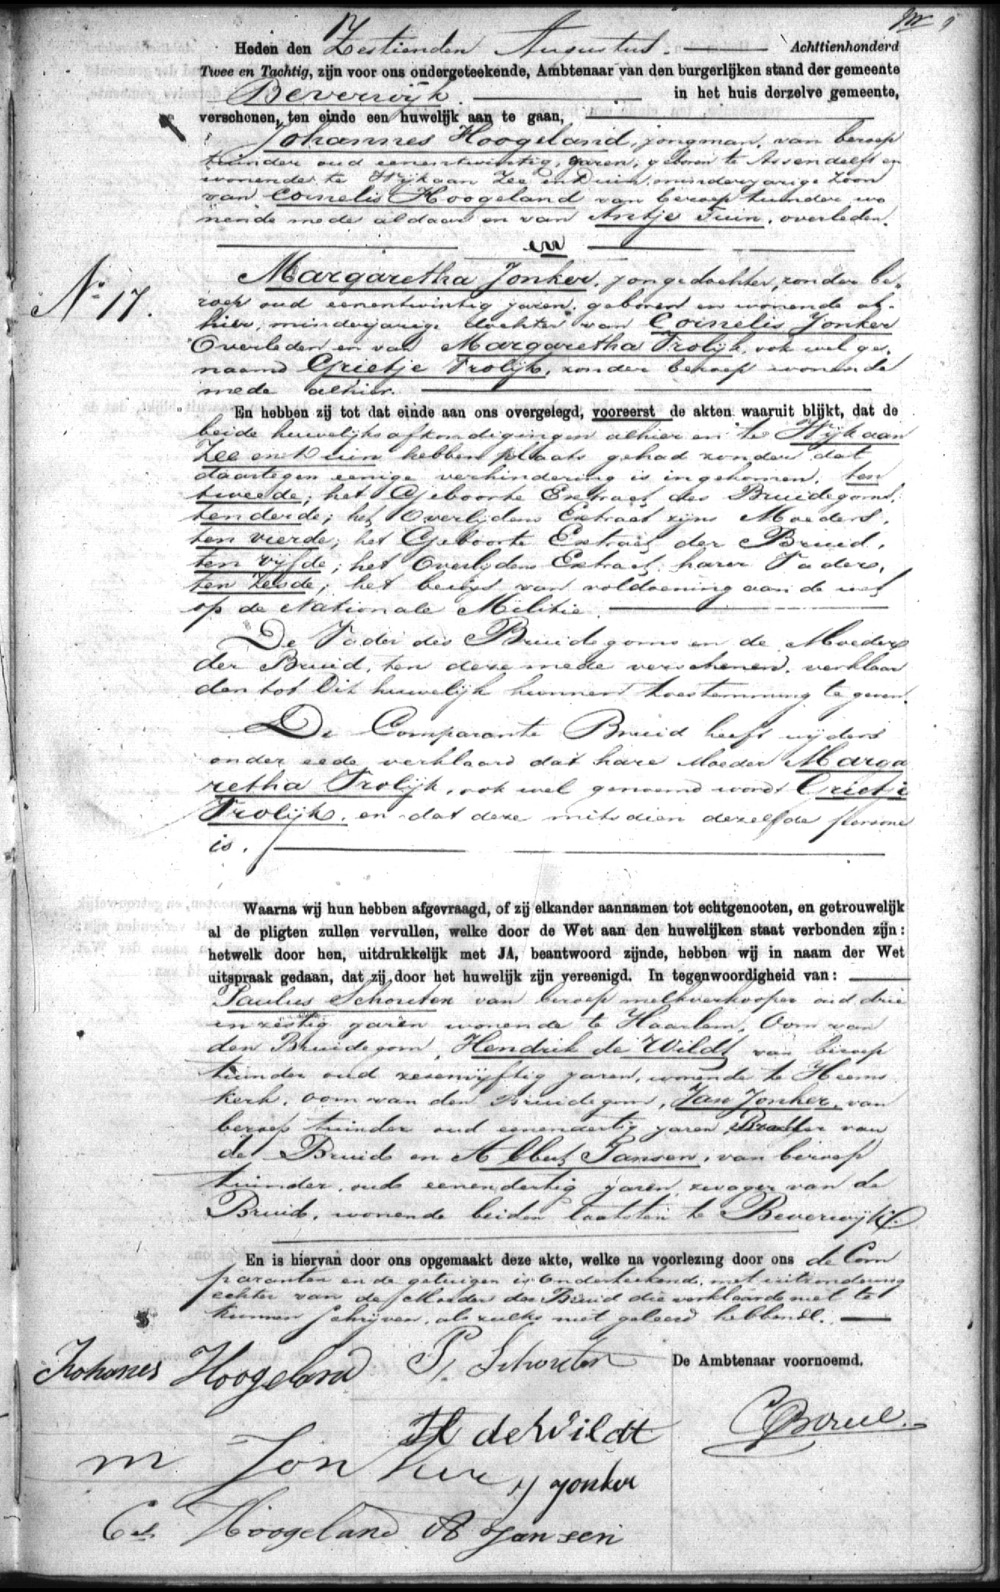 Heden den Zestienden Augustus. Achttienhonderd
Twee en Tachtig, zijn voor ons ondergeteekende, Ambtenaar van den burgerlijken stand der gemeente
Beverwijk in het huis derzelve gemeente,
verschenen, ten einde een huwelijk aan te gaan,
Johannes Hoogeland, jongman, van beroep
tuinder oud eenentwintig jaren, geboren te Assendelft en
wonende te Wijk aan Zee en Duin, minderjarige zoon
van Cornelis Hoogeland van beroep tuinder wo
nende mede aldaar en van Antje Tuin, overleden.
en
No. 17.
Margaretha Jonker, jongedochter, zonder be-
roep oud eenentwintig jaren, geboren en wonende al-
hier, minderjarige dochter van Cornelis Jonker
Overleden en van Margaretha Trolijk, ook wel ge-
naamd Grietje Trolijk, zonder beroep wonende
mede alhier.
En hebben zij tot dat einde aan ons overgelegd, vooreerst de akten waaruit blijkt, dat de
beide huwelijksafkondigingen alhier en te Wijk aan
Zee en Duin hebben plaats gehad zonder dat
daartegen eenige verhindering is ingekomen, ten
tweede; het Geboorte Extract des Bruidegoms,
ten derde; het Overlijdens Extract zijns Moeders,
ten vierde; het Geboorte Extract der Bruid,
ten vijfde; het Overlijdens Extract harer Vaders,
ten zesde; het bewijs van voldoening aan de wet
op de Nationale Militie.
De Vader des Bruidegoms en de Moeder
der Bruid, ten deze mede verschenen, verklaar
den tot dit huwelijk hunnen toestemming te geven.
De Comparante Bruid heeft wijders
onder eede verklaard dat hare Moeder Marga
retha Trolijk, ook wel genoemd wordt Grietje
Trolijk, en dat deze mitsdien dezelfde persone
is.
Waarna wij hun hebben afgevraagd, of zij elkander aannamen tot echtgenooten, en getrouwelijk
al de pligten zullen vervullen, welke door de Wet aan den huwelijken staat verbonden zijn:
hetwelk door hen, uitdrukkelijk met JA, beantwoord zijnde, hebben wij in naam der Wet
uitspraak gedaan, dat zij door het huwelijk zijn vereenigd. In tegenwoordigheid van:
Paulus Schouten van beroep melkverkooper oud drie
en zestig jaren wonende te Haarlem, Oom van
den Bruidegom, Hendrik de Wildt van beroep
tuinder oud zesenvijftig jaren, wonende te Heems
kerk, oom van den Bruidegom, Jan Jonker, van
beroep tuinder oud eenendertig jaren, Broeder van
de Bruid en Albert Jansen, van beroep
tuinder, oud eenendertig jaren, zwager van de
Bruid, wonende beiden laatsten te Beverwijk.
En is hiervan door ons opgemaakt deze akte, welke na voorlezing door ons de Com
paranten en de getuigen is onderteekend, met uitzondering
echter van de Moeder der Bruid die verklaarde niet te
kunnen schrijven, als zulks niet geleerd hebbende.
Johanes Hoogeland P. Schouten De Ambtenaar voornoemd,
H de Wildt
m Jonker J Jonker
Cs Hoogeland A Jansen